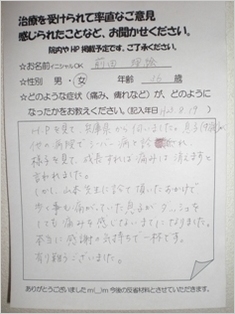 治療を受けられて率直なご意見
感じられたことなど、お聞かせください。
院内やHP掲載予定です、ご了承ください。
☆お名前 イニシャルOK 前田
☆性別 男・女 年齢 16 歳
☆どのような症状（痛み、痺れなど）が、どのように
なったかをお教えください。（記入日 H23.8.19）
HPを見て、兵庫県から伺いました。息子
他の病院で
様子を見て、成長すれば痛みは消えますと
言われました。
しかし、山本先生に診て頂いたおかげで
歩く事も痛がっていた息子が
しても痛みを感じないまでになりました。
本当に感謝の気持ちで一杯です。
有り難うございました。
ありがとうございました m(__)m 今後の反省材料とさせていただきます。